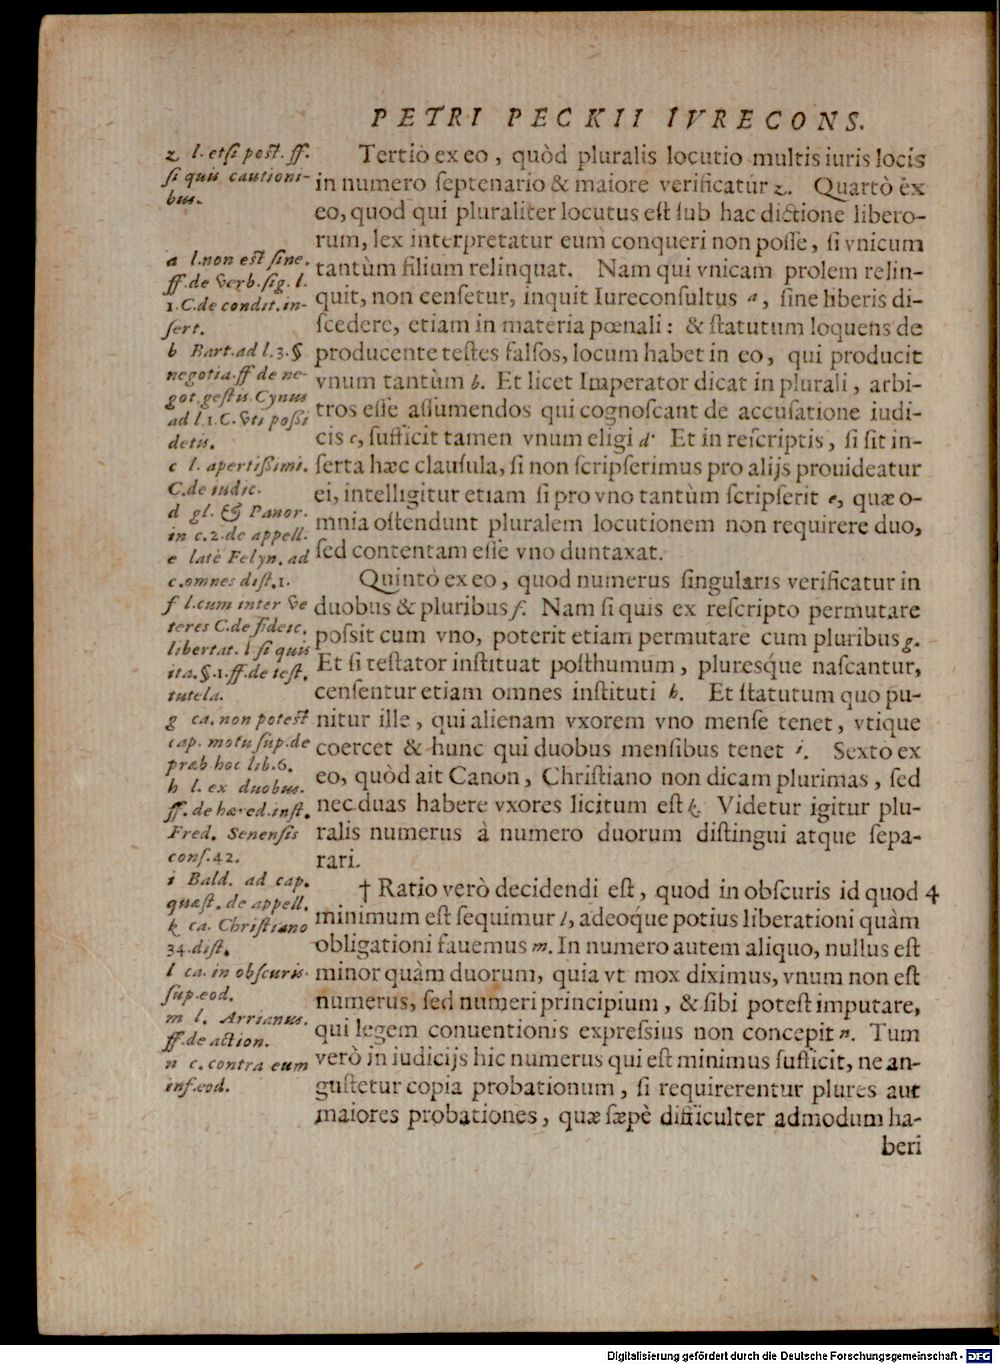 PETRI PECKII IVRECONS.
z l. etsi post. ff.
si quis cautioni-
bus.
a l. non est sine.
ff. de verb. sig. l.
1. C. de condit. in-
sert.
b Bart. ad l. 3. §
negotia. ff de ne-
got. gestis. Cynus
ad l. 1. C. vti possi
detis.
c l. apertissimi.
C. de iudic.
d gl. & Panor.
in c. 2. de appell.
e latè Felyn. ad
c. omnes dist. 1.
f l. cum inter ve
teres C. de fideic.
libertat. l si quis
ita. §. 1. ff. de test.
tutela.
g ca. non potest
cap. motu sup. de
præb hoc lib. 6.
h l. ex duobus.
ff. de hæred. inst.
Fred. Senensis
cons. 42.
i Bald. ad cap.
quæst. de appell.
k ca. Christiano
34. dist.
l ca. in obscuris.
sup. eod.
m l. Arrianus.
ff. de action.
n c. contra eum
inf. eod.
Tertiò ex eo, quòd pluralis locutio multis iuris locis
in numero septenario & maiore verificatur z. Quartò ex
eo, quod qui pluraliter locutus est sub hac dictione libero-
rum, lex interpretatur eum conqueri non posse, si vnicum
tantùm filium relinquat. Nam qui vnicam prolem relin-
quit, non censetur, inquit Iureconsultus a, sine liberis di-
scedere, etiam in materia pœnali: & statutum loquens de
producente testes falsos, locum habet in eo, qui producit
vnum tantùm b. Et licet Imperator dicat in plurali, arbi-
tros esse assumendos qui cognoscant de accusatione iudi-
cis c, sufficit tamen vnum eligi d. Et in rescriptis, si sit in-
serta hæc clausula, si non scripserimus pro alijs prouideatur
ei, intelligitur etiam si pro vno tantùm scripserit e, quæ o-
mnia ostendunt pluralem locutionem non requirere duo,
sed contentam esse vno duntaxat.
Quintò ex eo, quod numerus singularis verificatur in
duobus & pluribus f. Nam si quis ex rescripto permutare
possit cum vno, poterit etiam permutare cum pluribus g.
Et si testator instituat posthumum, pluresque nascantur,
censentur etiam omnes instituti h. Et statutum quo pu-
nitur ille, qui alienam vxorem vno mense tenet, vtique
coercet & hunc qui duobus mensibus tenet i. Sextò ex
eo, quòd ait Canon, Christiano non dicam plurimas, sed
nec duas habere vxores licitum est k. Videtur igitur plu-
ralis numerus à numero duorum distingui atque sepa-
rari.
† Ratio verò decidendi est, quod in obscuris id quod 4
minimum est sequimur l, adeoque potius liberationi quàm
obligationi fauemus m. In numero autem aliquo, nullus est
minor quàm duorum, quia vt mox diximus, vnum non est
numerus, sed numeri principium, & sibi potest imputare,
qui legem conuentionis expressius non concepit n. Tum
verò in iudicijs hic numerus qui est minimus sufficit, ne an-
gustetur copia probationum, si requirerentur plures aut
maiores probationes, quæ sæpè difficulter admodum ha-
beri
Digitalisierung gefördert durch die Deutsche Forschungsgemeinschaft - DFG